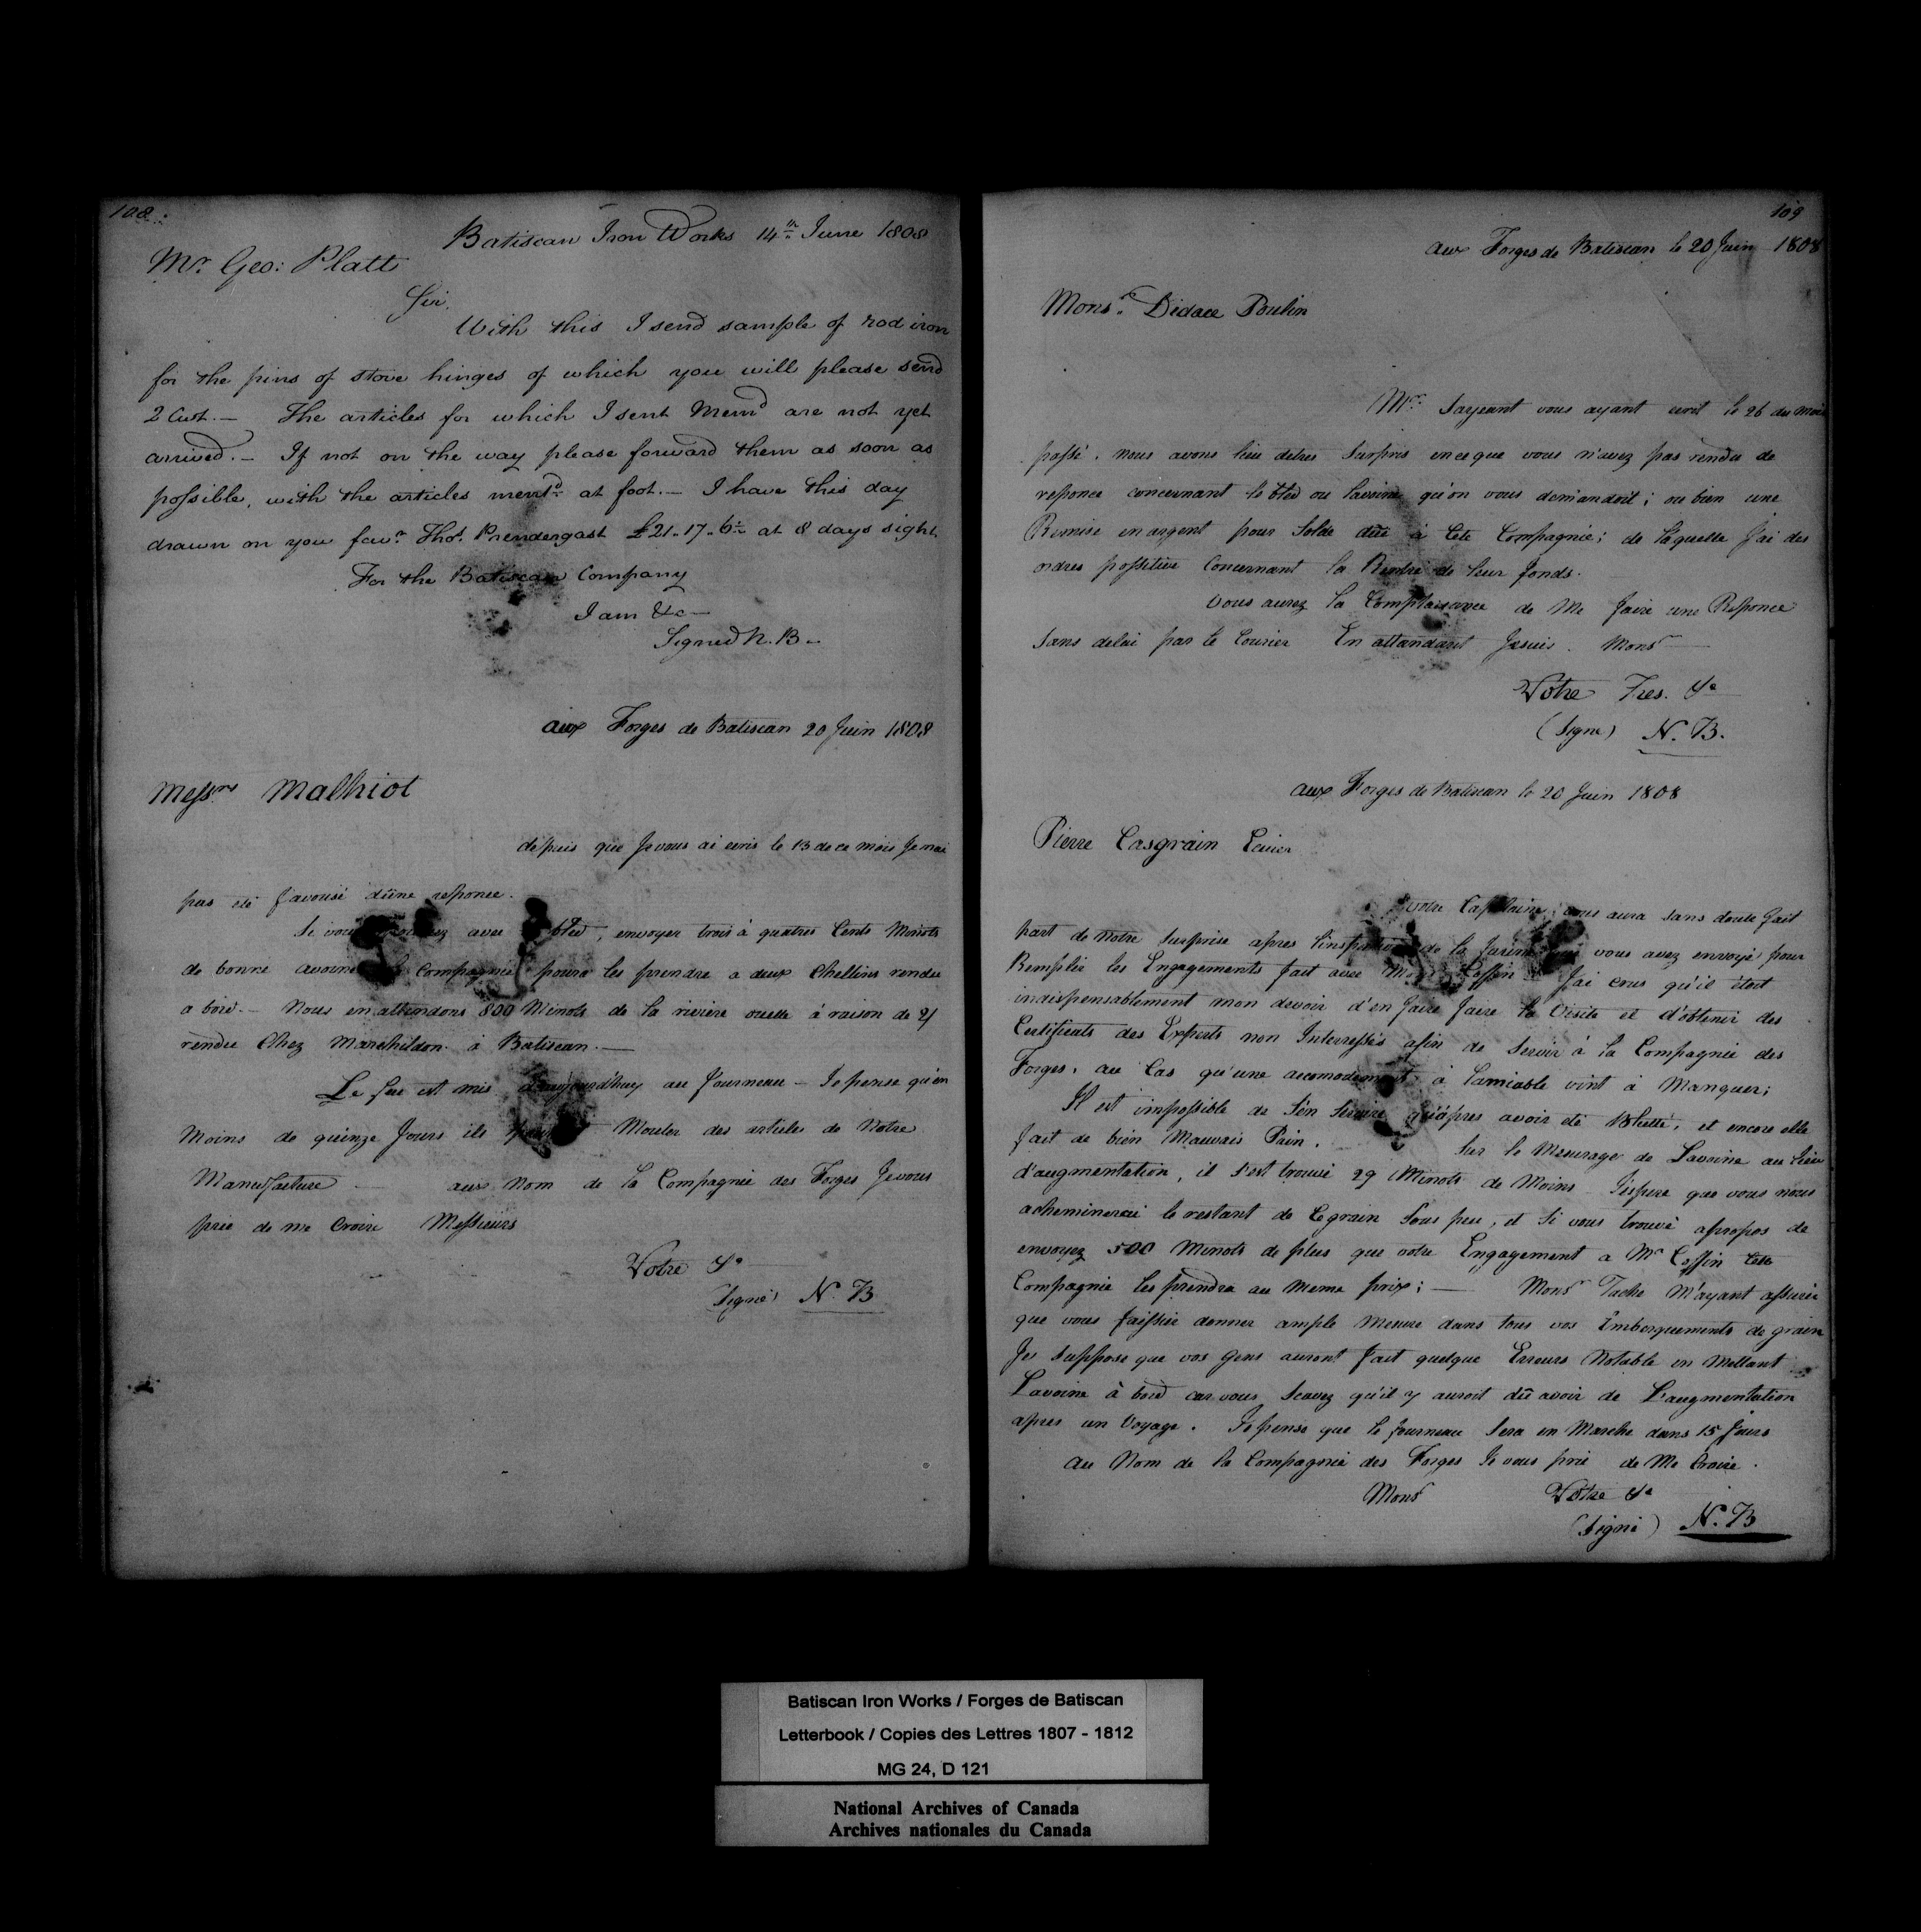 108.
Batiscan Iron Works 14th June 1808
Mr. Geo: Platt
Sir,
With this I send sample of rod iron
for the pins of stove hinges of which you will please send
2 Cwt. — The articles for which I sent Memd are not yet
arrived. — If not on the way please forward them as soon as
possible, with the articles mentd at foot. — I have this day
drawn on you favr. Thos. Prendergast £21.17.6 at 8 days sight.
For the Batiscan Company
I am &c —
Signed N. B —
aux Forges de Batiscan 20 Juin 1808
Messrs Malhiot
depuis que Je vous ai ecris le 13 de ce mois Je nai
pas eté favorisé dùne responce.
Si vous avec bled, envoyer trois à quatres Cents Minots
de bonne avoine Compagnie poura les prendre a deux Chellins rendu
a bord. — Nous en attendons 800 Minots de la riviere ouelle à raison de 2/
rendu Chez Marchildon à Batiscan. —
Le feu est mis d'aujourdhuy au Fourneau — Je pense qu'en
Moins de quinze Jours ils Mouler des articles de Notre
Manufacture — aux Nom de la Compagnie des Forges Je vous
prie de me Croire Messieurs
Votre &a
Signé) N. B
109
aux Forges de Batiscan le 20 Juin 1808
Monsr. Didace Poulin
Mr. Sargeant vous ayant ecrit le 26 du mois
passé. nous avons lieu detres Surpris en ce que vous n'avez pas rendu de
responce concernant le bled ou lavoine qu'on vous demandoit; ou bien une
Remise en argent pour Solde dûe à Cete Compagnie; de laquelle J'ai des
ordres possitive Concernant la Rentré de leur fonds.
Vous aurez la Complaisance de Me faire une Responce
Sans delai par le Courier En attandant Je suis. Monsr —
Votre Tres. &a
(Signe) N. B.
aux Forges de Batiscan le 20 Juin 1808
Pierre Casgrain Ecuier
Votre Capitaine vous aura sans doute fait
part de Notre Surprise apres l'inspection de la farine vous avez envoyé pour
Remplir les Engagements fait avec Mr Coffin J'ai crus qu'il étoit
indispensablement mon devoir d'en faire faire la Visite et d'obtenir des
Certificats des Experts non Interressés afin de Servir à la Compagnie des
Forges, au Cas qu'une accomodement à Lamiable vint à Manquer;
Il est impossible de S'en Servire qu'àpres avoir eté Blutté, et encore elle
fait de bien Mauvais Pain. Sur le Mesurage de Lavoine au lieu
d'augmentation, il s'est trouvé 29 Minots de Moins J'espere que vous nous
acheminerai le restant de Ce grain Sous peu, et Si vous trouvé apropos de
envoyez 500 Minots de plus que votre Engagement a Mr Coffin Cete
Compagnie les prendra au Meme prix; — Monsr Taché M'ayant assurée
que vous faissiée donner ample Mesure dans tous vos Emberquements de grain
Je Suppose que vos gens auront fait quelque Erreurs Notable en Mettant
Lavoine à bord car vous Scavez qu'il y auroit dû avoir de L'augmentation
apres un Voyage. Je pense que le fourneau Sera en Marche dans 15 Jours
au Nom de la Compagnie des Forges Je vous prie de Me Croire.
Monsr Votre &a
(Signé) N. B
Batiscan Iron Works / Forges de Batiscan
Letterbook / Copies des Lettres 1807 - 1812
MG 24, D 121
National Archives of Canada
Archives nationales du Canada